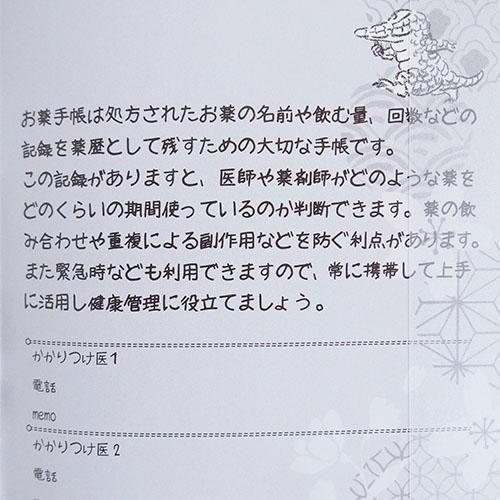 お薬手帳は処方されたお薬の名前や飲む量、回数などの
記録を薬歴として残すための大切な手帳です。
この記録がありますと、医師や薬剤師がどのような薬を
どのくらいの期間使っているのか判断できます。薬の飲
み合わせや重複による副作用などを防ぐ利点があります。
また緊急時なども利用できますので、常に携帯して上手
に活用し健康管理に役立てましょう。
かかりつけ医1
電話
memo
かかりつけ医2
電話